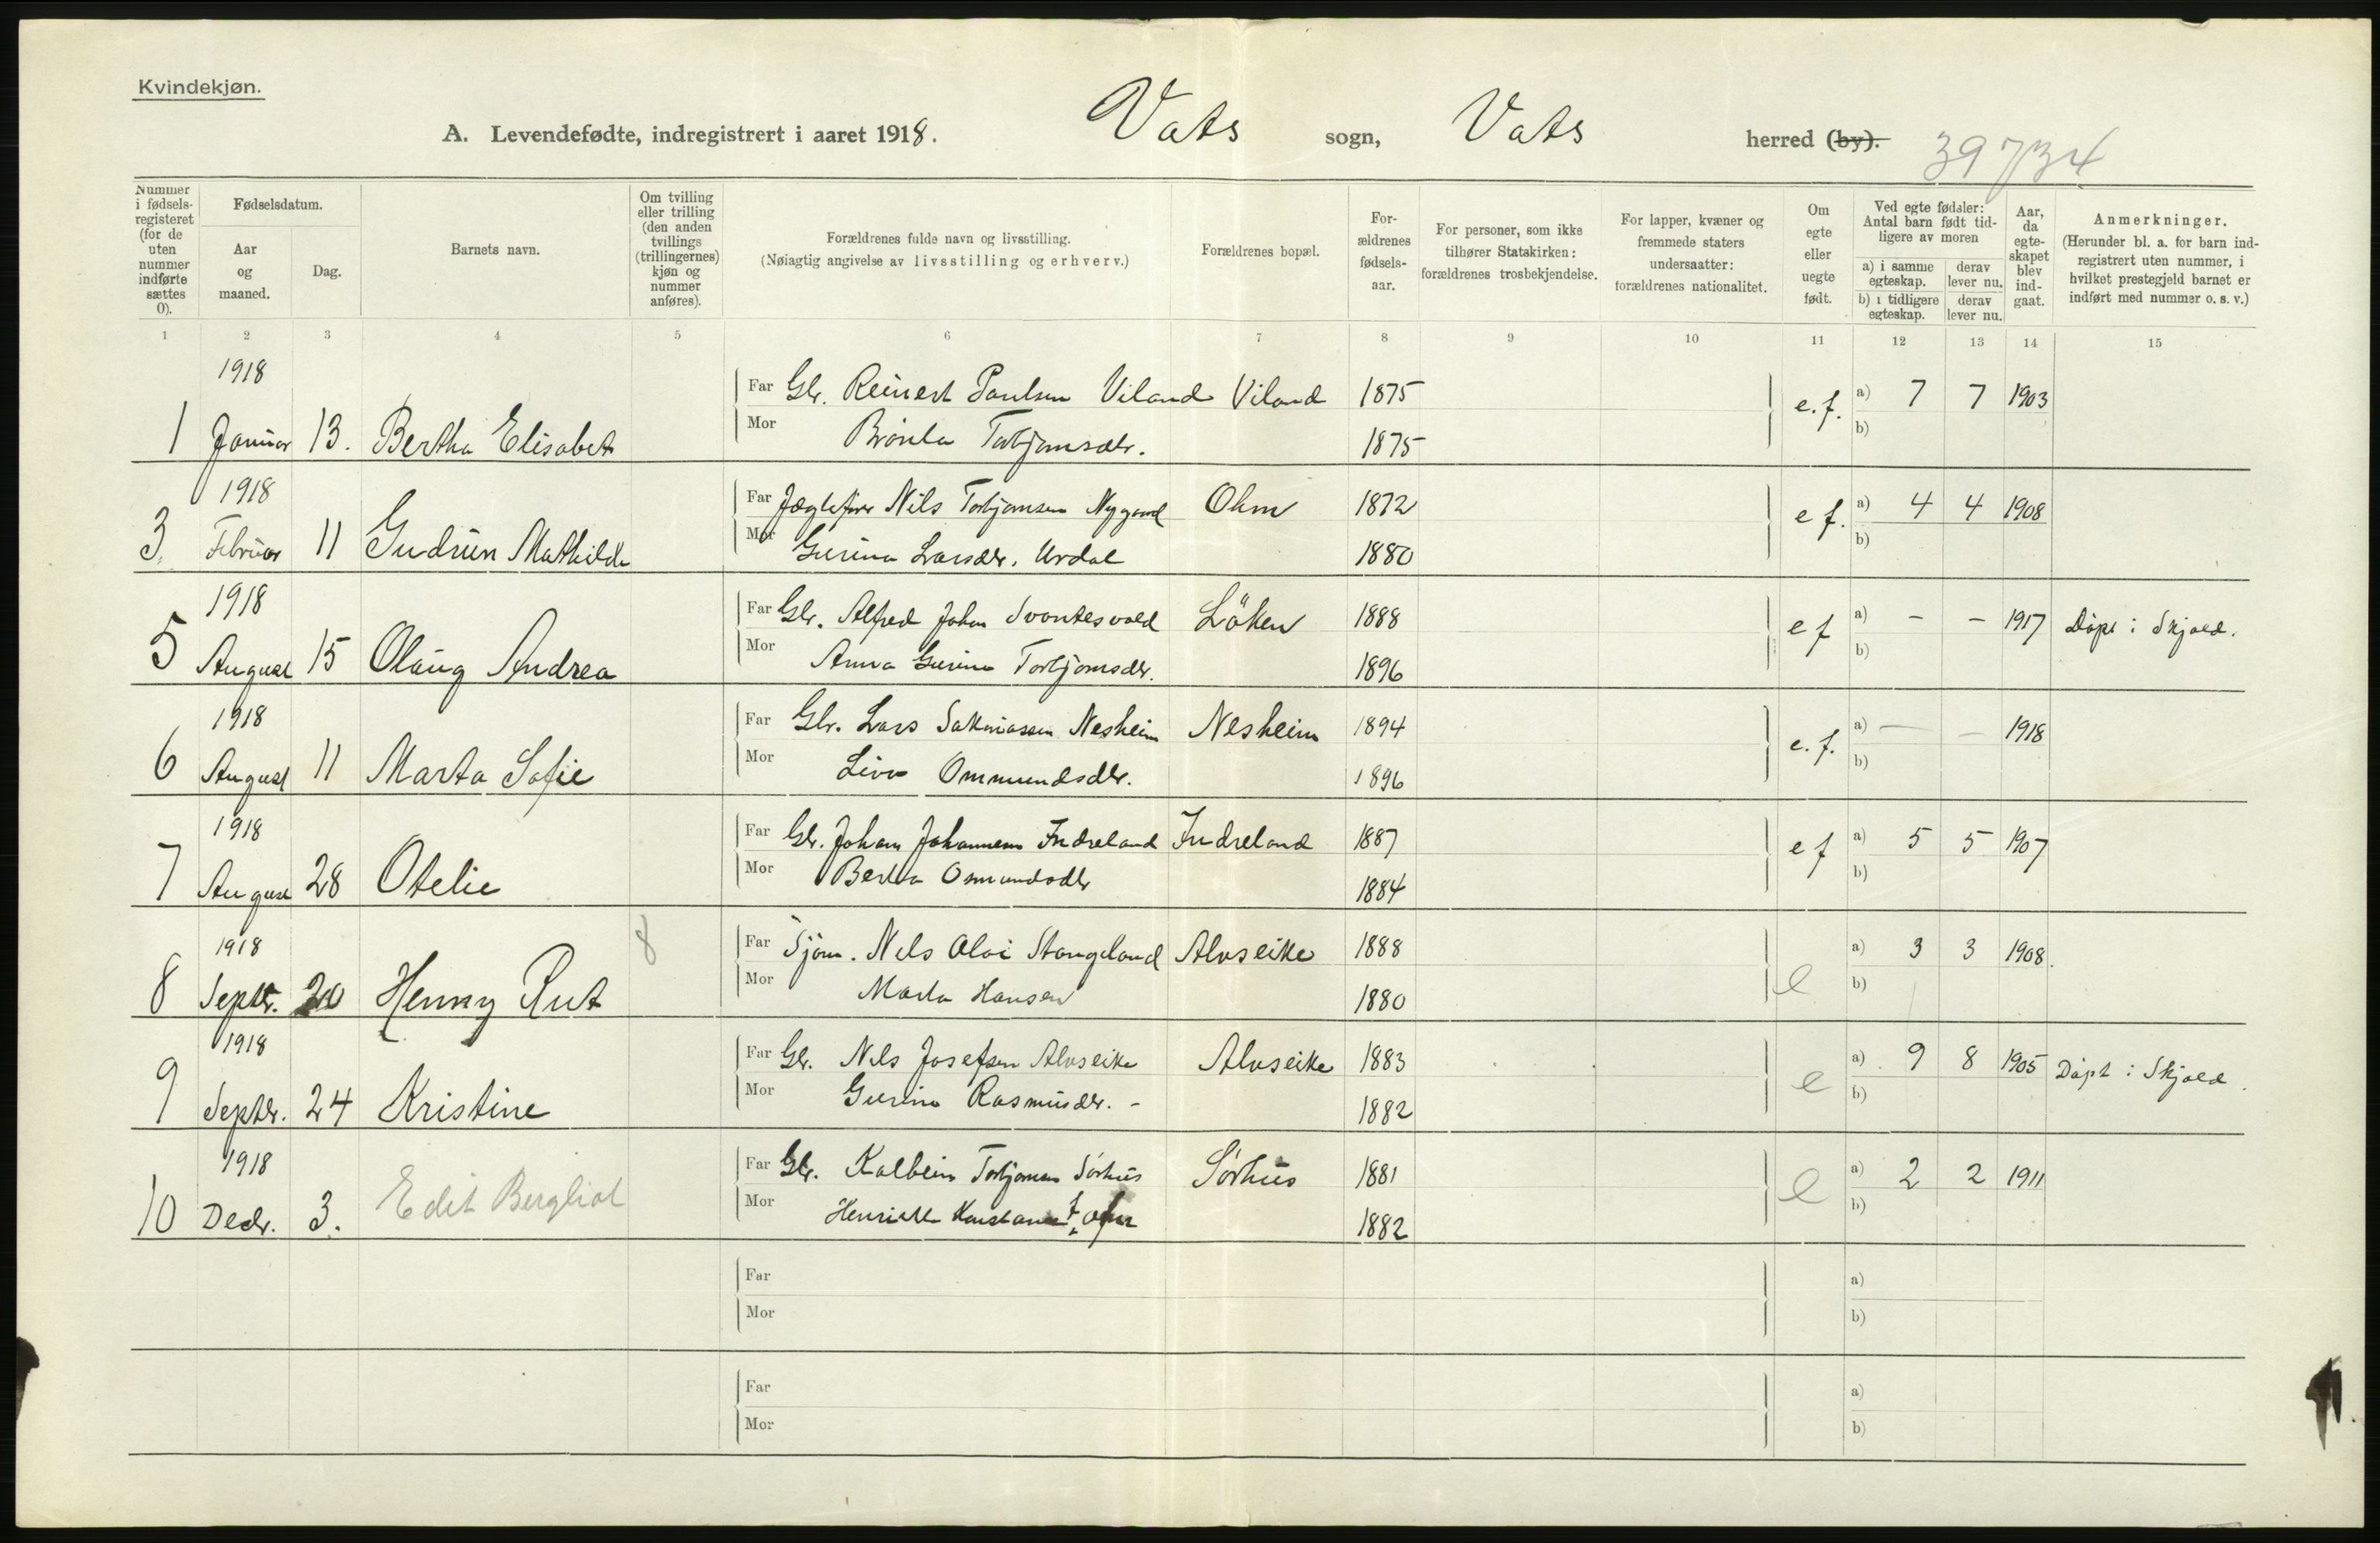 Kvindekjøn.
A. Levendefødte, indregistrert i aaret 1918. Vats sogn, Vats herred (by).
39734
Nummer i fødselsregisteret (for de uten nummer indførte sættes 0).
Fødselsdatum.
Aar og maaned.
Dag.
Barnets navn.
Om tvilling eller trilling (den anden tvillings (trillingernes) kjøn og nummer anføres).
Forældrenes fulde navn og livsstilling.
(Nøiagtig angivelse av livsstilling og erhverv.)
Forældrenes bopæl.
Forældrenes fødselsaar.
For personer, som ikke tilhører Statskirken: forældrenes trosbekjendelse.
For lapper, kvæner og fremmede staters undersaatter: forældrenes nationalitet.
Om egte eller uegte født.
Ved egte fødsler: Antal barn født tidligere av moren
a) i samme egteskap. derav lever nu.
b) i tidligere egteskap. derav lever nu.
Aar, da egteskapet blev indgaat.
Anmerkninger.
(Herunder bl. a. for barn indregistrert uten nummer, i hvilket prestegjeld barnet er indført med nummer o. s. v.)
1 2 3 4 5 6 7 8 9 10 11 12 13 14 15
1918
Far Gbr. Reinert Paulsen Viland Viland 1875 e.f. a) 7 7 1903
1 Januar 13. Bertha Elisabet Mor Torbjørnsdtr. 1875 b)
1918
Far Nils Torbjørnsen Nygaard Ohm 1872 e f. a) 4 4 1908
3. Februar 11 Gudrun Mathilde Mor Gurina Larsdtr. Urdal 1880 b)
1918
Far Gbr. Alfred Johan Svontesvold Löken 1888 e f a) - - 1917 Døpt i Skjold.
5 August 15 Olaug Andrea Mor Anna Gurina Torbjørnsdtr. 1896 b)
1918
Far Gbr. Lars Sakariassen Nesheim Nesheim 1894 e. f. a) — — 1918
6 August 11 Marta Sofie Mor Ommundsdtr. 1896 b)
1918
Far Gbr. Johan Johannesen Indreland Indreland 1887 e f a) 5 5 1907
7 August 28 Otelie Mor Berta Osmundsdtr 1884 b)
1918 8
Far Sjøm. Nils Olai Stangeland Alvseike 1888 e a) 3 3 1908.
8 Septr. 20 Henny Rut Mor Marta Hansen 1880 b)
1918
Far Gbr. Nils Josefsen Alvseike Alvseike 1883 e a) 9 8 1905 Døpt i Skjold.
9 Septbr. 24 Kristine Mor Gurina Rasmusdtr. - 1882 b)
1918
Far Gbr. Kolbein Torbjørnsen Sørhus Sørhus 1881 e a) 2 2 1911
10 Decbr. 3. Edit Bergliot Mor Henriette 1882 b)
Far a)
Mor b)
Far a)
Mor b)